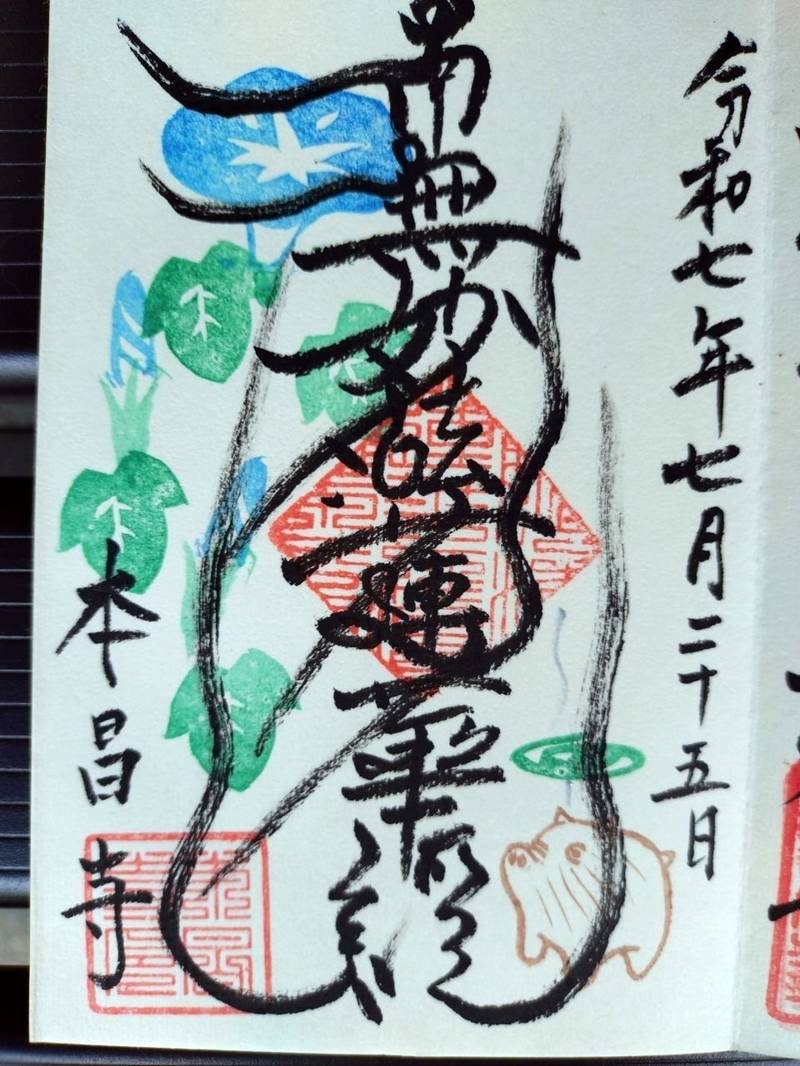 令和七年七月二十五日
南無妙法蓮華経
本昌寺